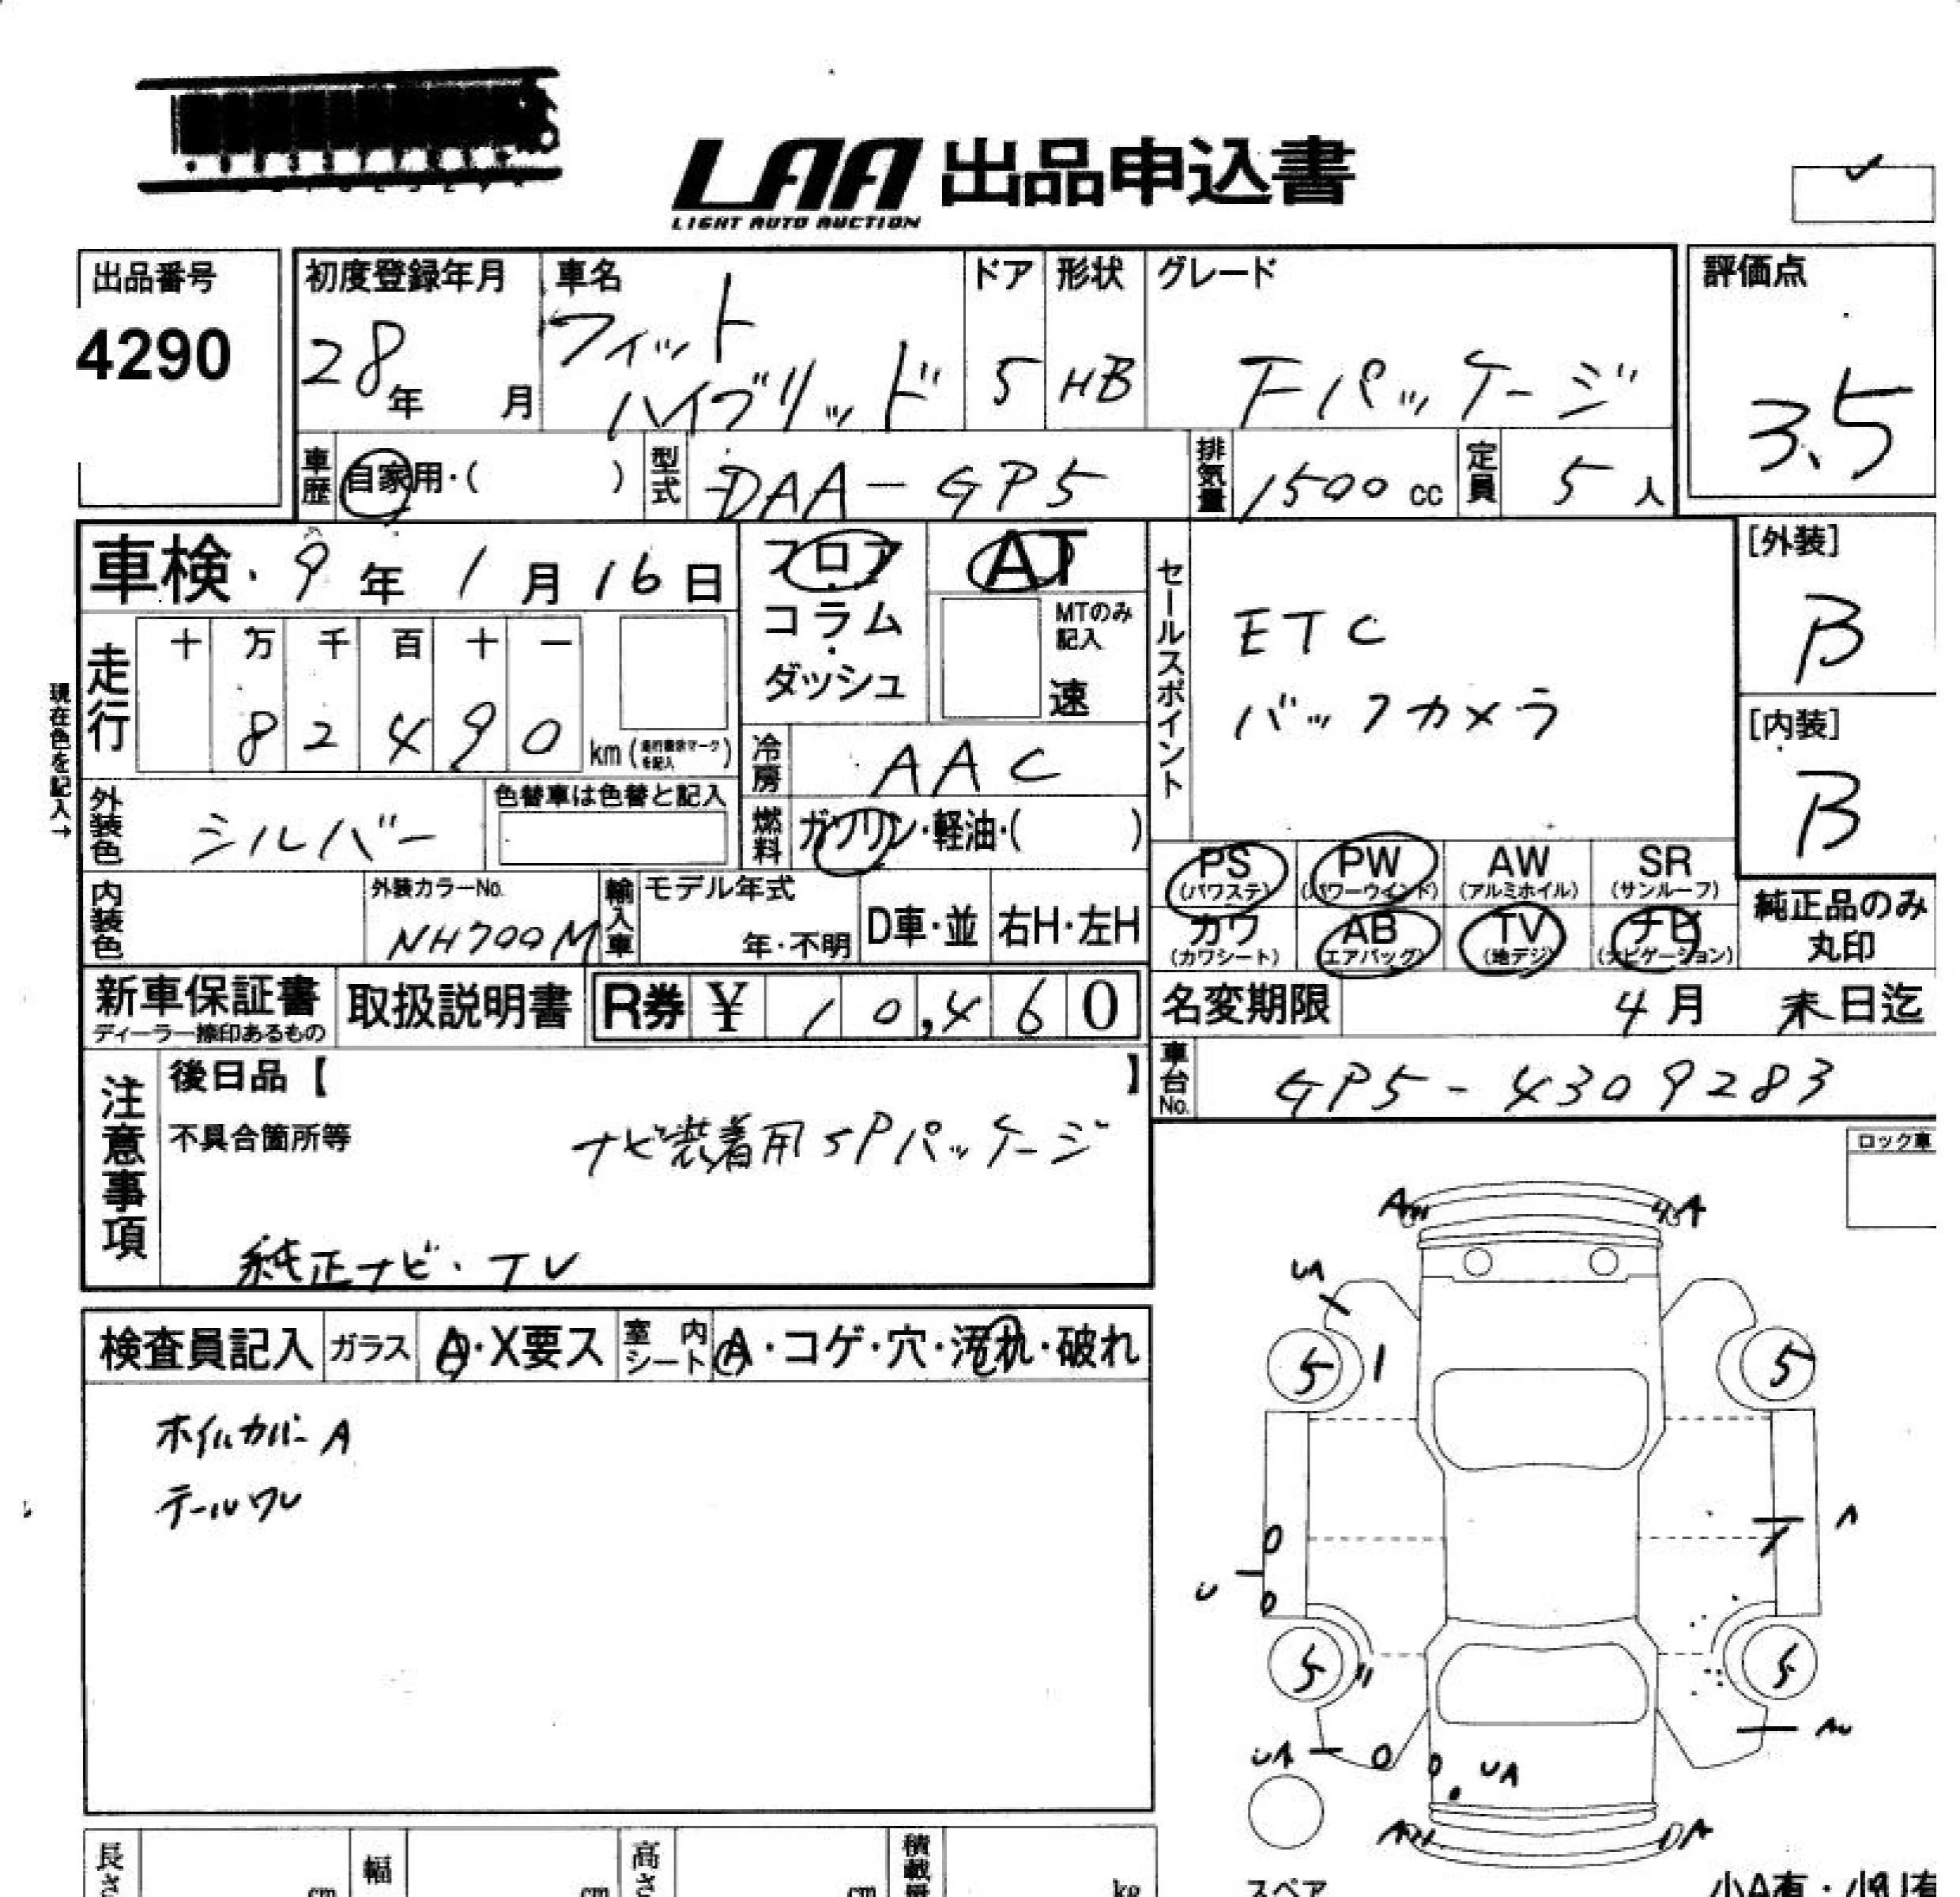 LAA 出品申込書
LIGHT AUTO AUCTION
出品番号
4290
初度登録年月
28年 月
車名
フィット
ハイブリッド
ドア
5
形状
HB
グレード
Fパッケージ
評価点
3.5
車歴 自家用・( )
型式 DAA-GP5
排気量 1500 cc
定員 5 人
車検 9年 1月 16日
フロア
コラム
ダッシュ
AT
MTのみ
記入
速
セールスポイント
ETC
バックカメラ
[外装]
B
[内装]
B
現在色を記入→
走行
十 万 千 百 十 一
8 2 4 9 0 km
冷房 AAC
外装色 シルバー
色替車は色替と記入
燃料 ガソリン・軽油・( )
PS (パワステ)
PW (パワーウインド)
AW (アルミホイル)
SR (サンルーフ)
カワ (カワシート)
AB (エアバッグ)
TV (地デジ)
ナビ (ナビゲーション)
純正品のみ
丸印
内装色
外装カラーNo.
NH700M
輸入車
モデル年式
年・不明
D車・並
右H・左H
新車保証書
ディーラー捺印あるもの
取扱説明書
R券 ¥ 10,460
名変期限 4月 末日迄
車台No. GP5-4309283
注意事項
後日品【 】
不具合箇所等
ナビ装着用SPパッケージ
純正ナビ・TV
ロック車
検査員記入
ガラス A・X要ス
室内シート A・コゲ・穴・汚れ・破れ
ホイルカバーA
テールワレ
A A
UA
5 5
A
U
5 5
UA UA
スペア
長さ cm
幅 cm
高さ cm
積載量 kg